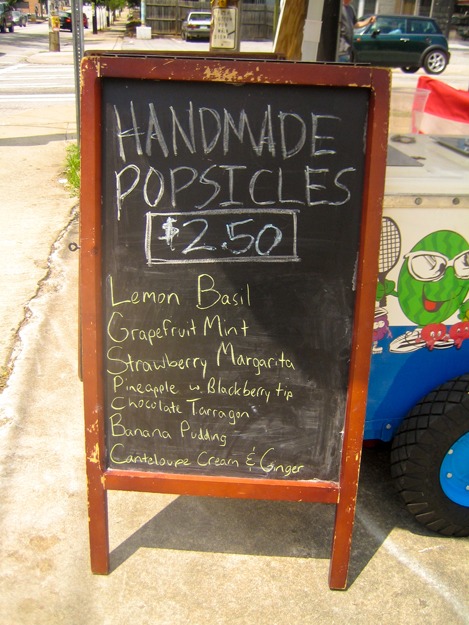 HANDMADE
POPSICLES
$2.50
Lemon Basil
Grapefruit Mint
Strawberry Margarita
Pineapple w. Blackberry tip
Chocolate Tarragon
Banana Pudding
Canteloupe Cream & Ginger